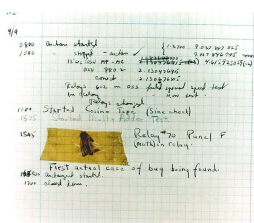 9/9
0800 Antan started
1000 " stopped - antan ✓
13"uc (032) MP - MC
(033) PRO 2 2.130476415
correct 2.130676415
Relays 6-2 in 033 failed special speed test
in relay
Relays changed
1100 Started Cosine Tape (Sine check)
1525 Started Multi Adder Test.
1545 Relay #70 Panel F
(Moth) in relay.
First actual case of bug being found.
antangent started.
1700 closed down.